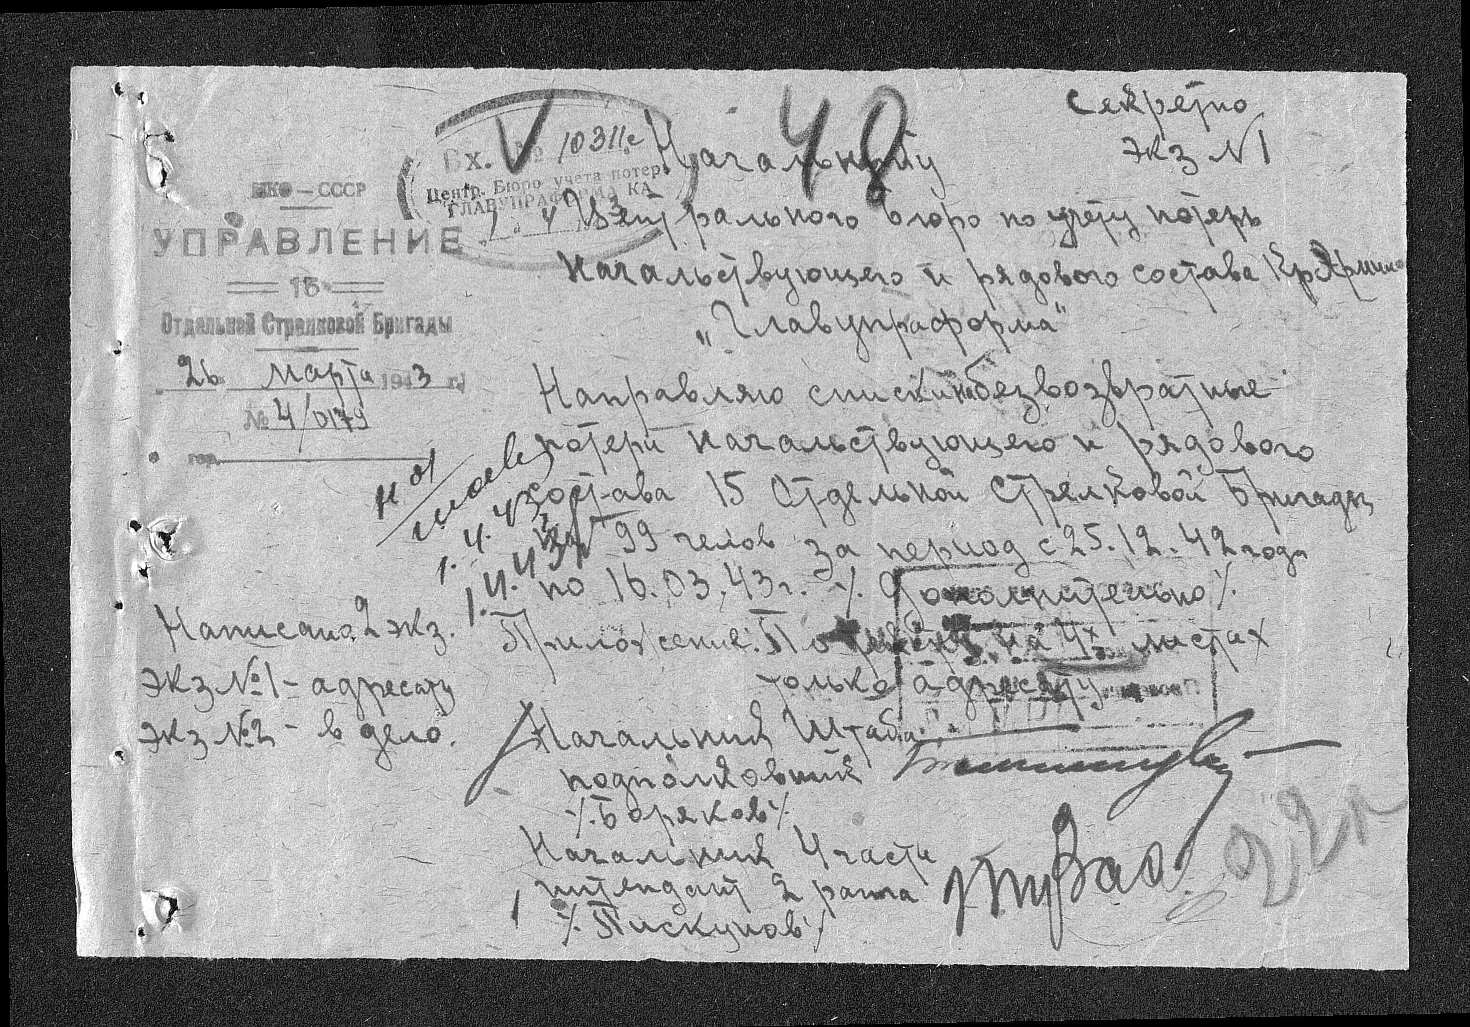 Секретно
экз N1
48
Вх. № 10311с
Центр. Бюро учета потерь
ГЛАВУПРАФОРМА КА
НКО — СССР
УПРАВЛЕНИЕ
15
Отдельной Стрелковой Бригады
26 марта 1943 г.
№ 4/0179
гор.
Начальнику
Центрального бюро по учету потерь
начальствующего и рядового состава Кр Армии
„Главупраформа"
Направляю списки на безвозвратные
потери начальствующего и рядового
состава 15 Отдельной Стрелковой Бригады
на 99 челов за период с 25.12.42 года
по 16.03.43 г. /. Дополнительно /.
Приложение: По тексту на 4х листах
только адресату
1.4.43
1.4.43
Написано 2 экз.
экз №1 – адресату
экз №2 – в дело.
Начальник Штаба
подполковник
/. Боряков /.
Начальник 4 части
интендант 2 ранга
/. Пискунов /
22л